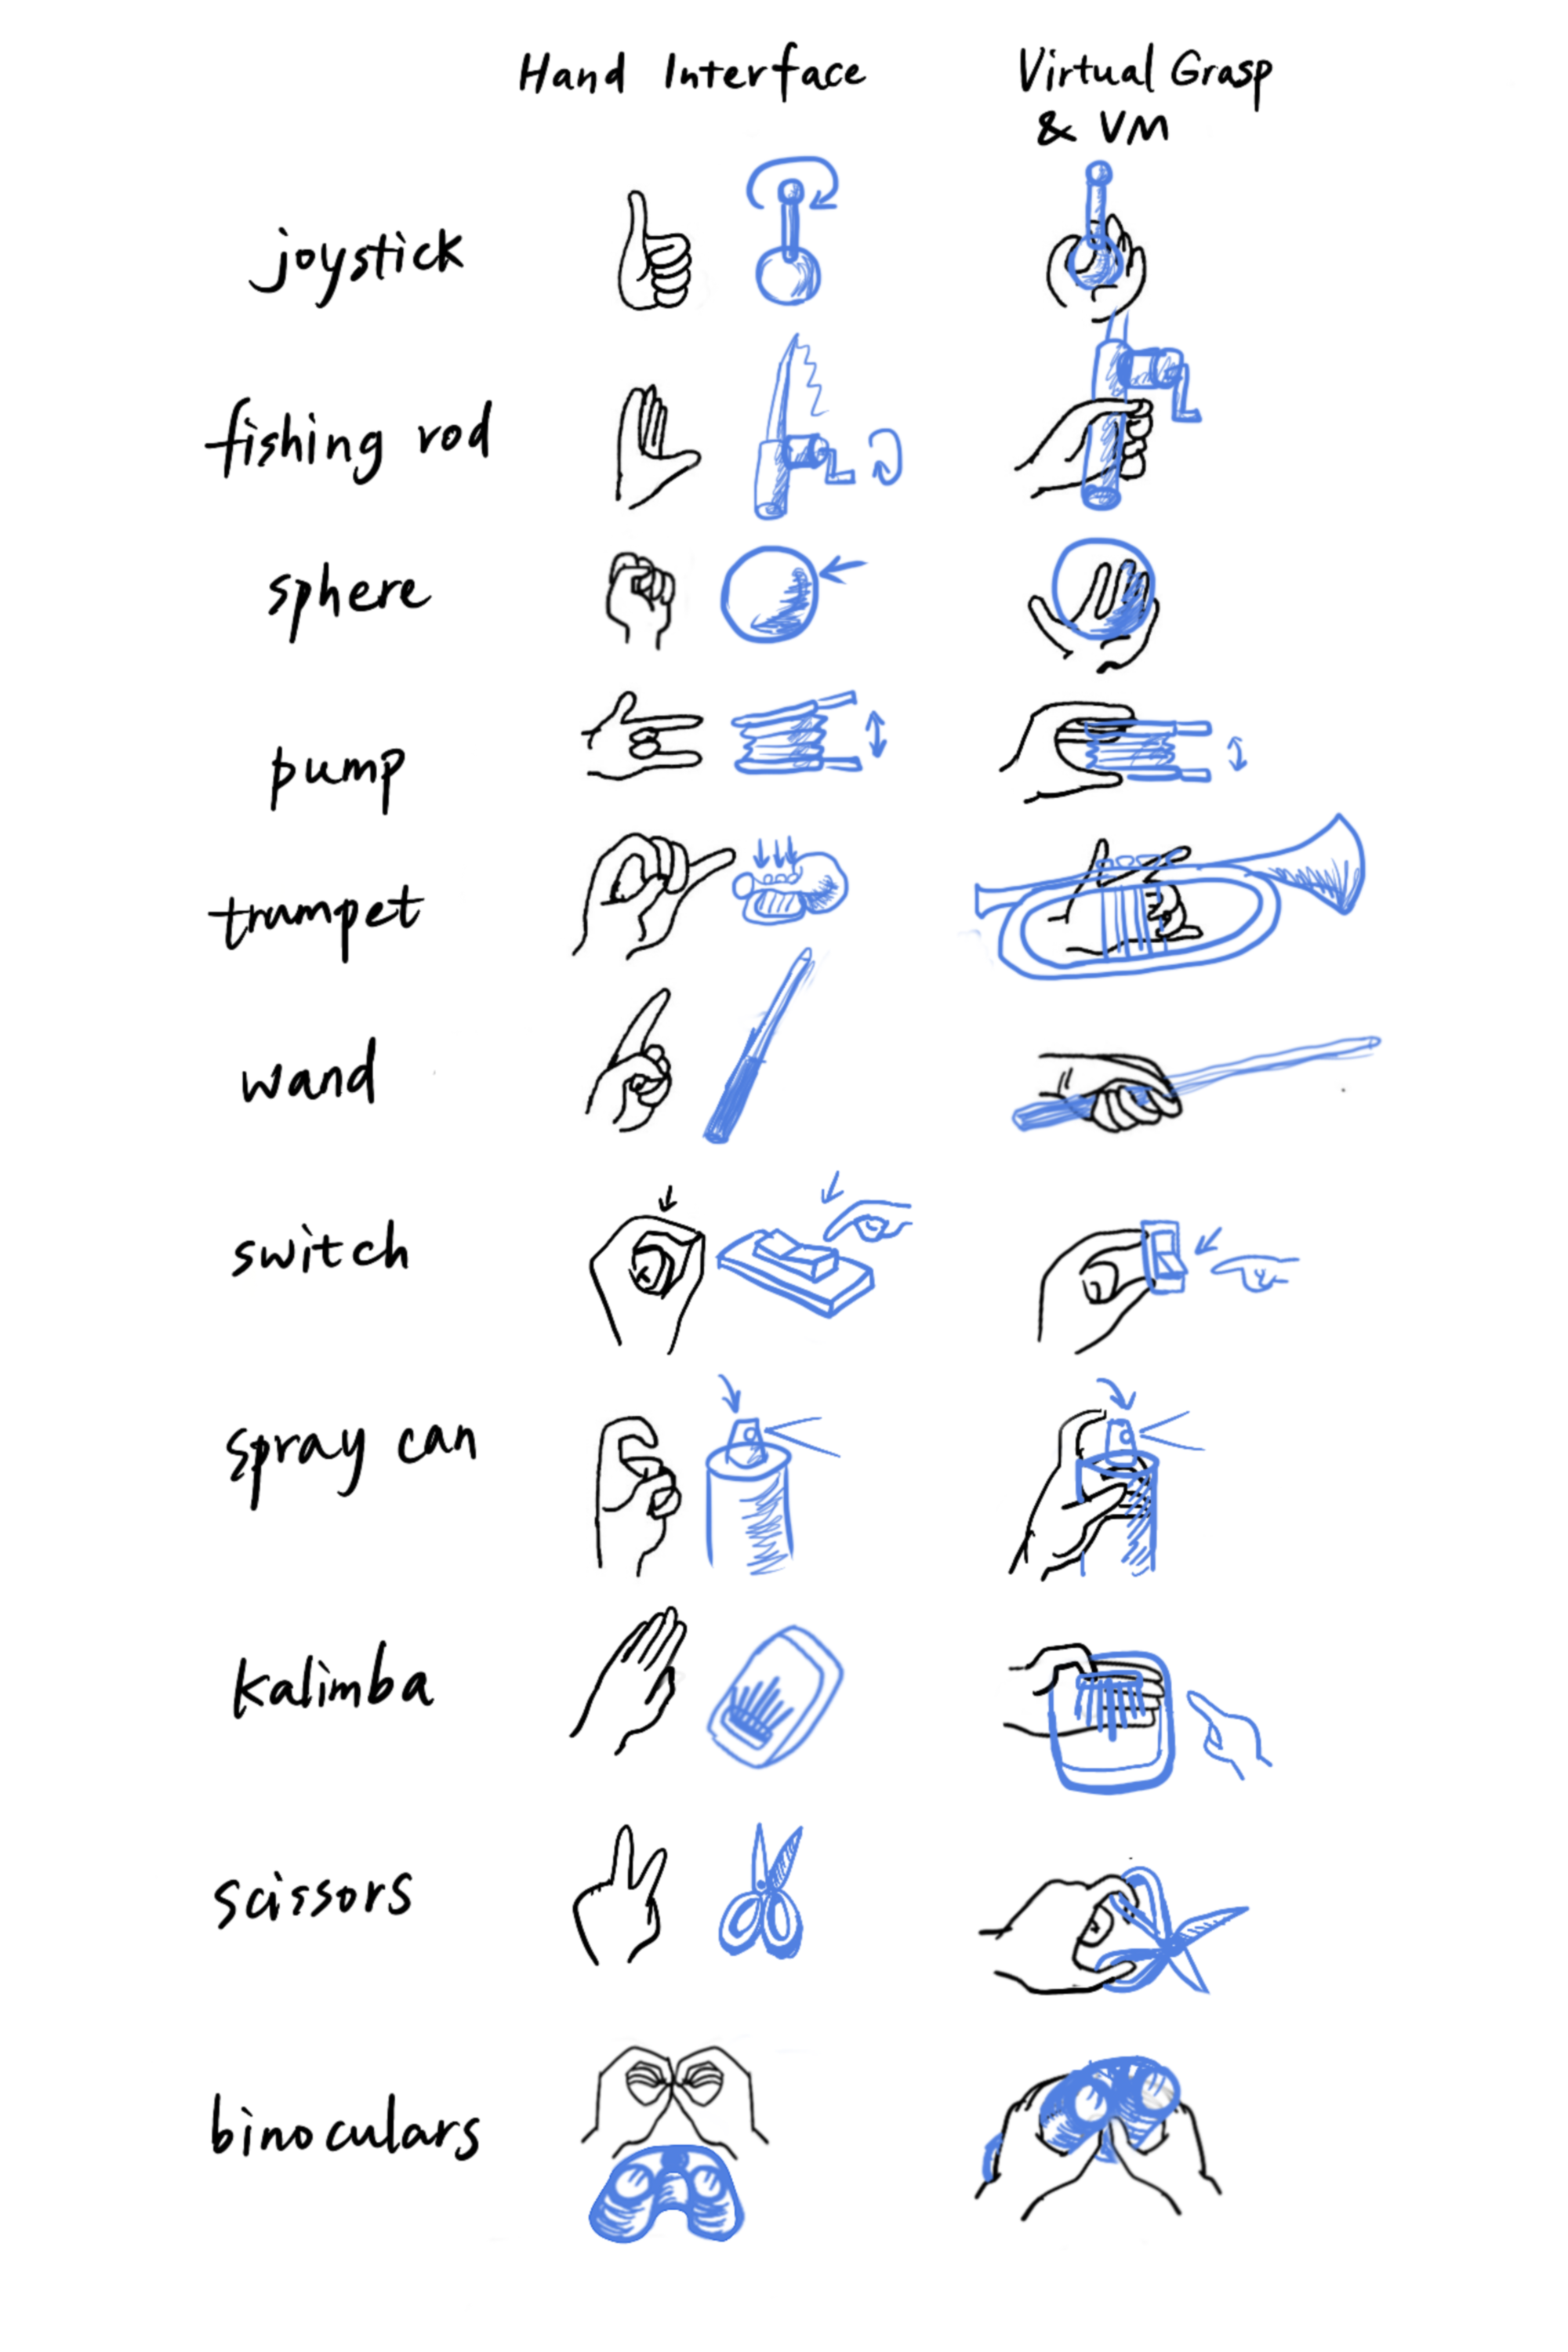 Hand Interface
Virtual Grasp
& VM
joystick
fishing rod
sphere
pump
trumpet
wand
switch
spray can
kalimba
scissors
binoculars